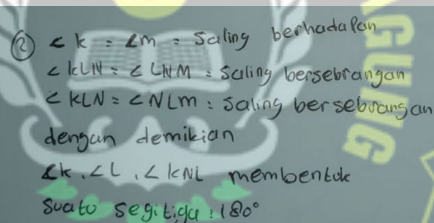 ② ∠k = ∠m = Saling berhadapan
∠kLN = ∠LNM = Saling bersebrangan
∠KLN = ∠NLm : Saling bersebrangan
dengan demikian
∠k, ∠L, ∠kNL membentuk
Suatu segitiga : 180°
GUNG